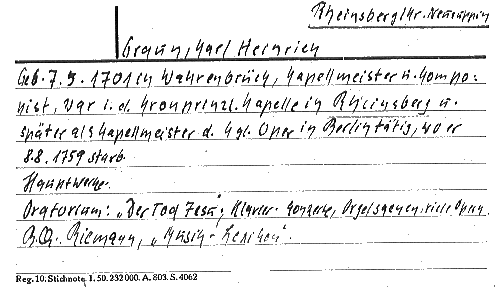 Rheinsberg Kr. Neuruppin
Graun, Karl Heinrich
Geb. 7.5. 1701 in Wahrenbrück, Kapellmeister u. Kompo-
nist, war i. d. Kronprinzl. Kapelle in Rheinsberg u.
später als Kapellmeister d. Kgl. Oper in Berlin tätig, wo er
8.8. 1759 starb.
Hauptwerke.
Oratorium: „Der Tod Jesu", Klavier-Konzerte, Orgelsachen, viele Opern.
Riemann, „Musik-Lexikon".
Reg. 10. Stichnote. 1. 50. 232000. A. 803. S. 4062